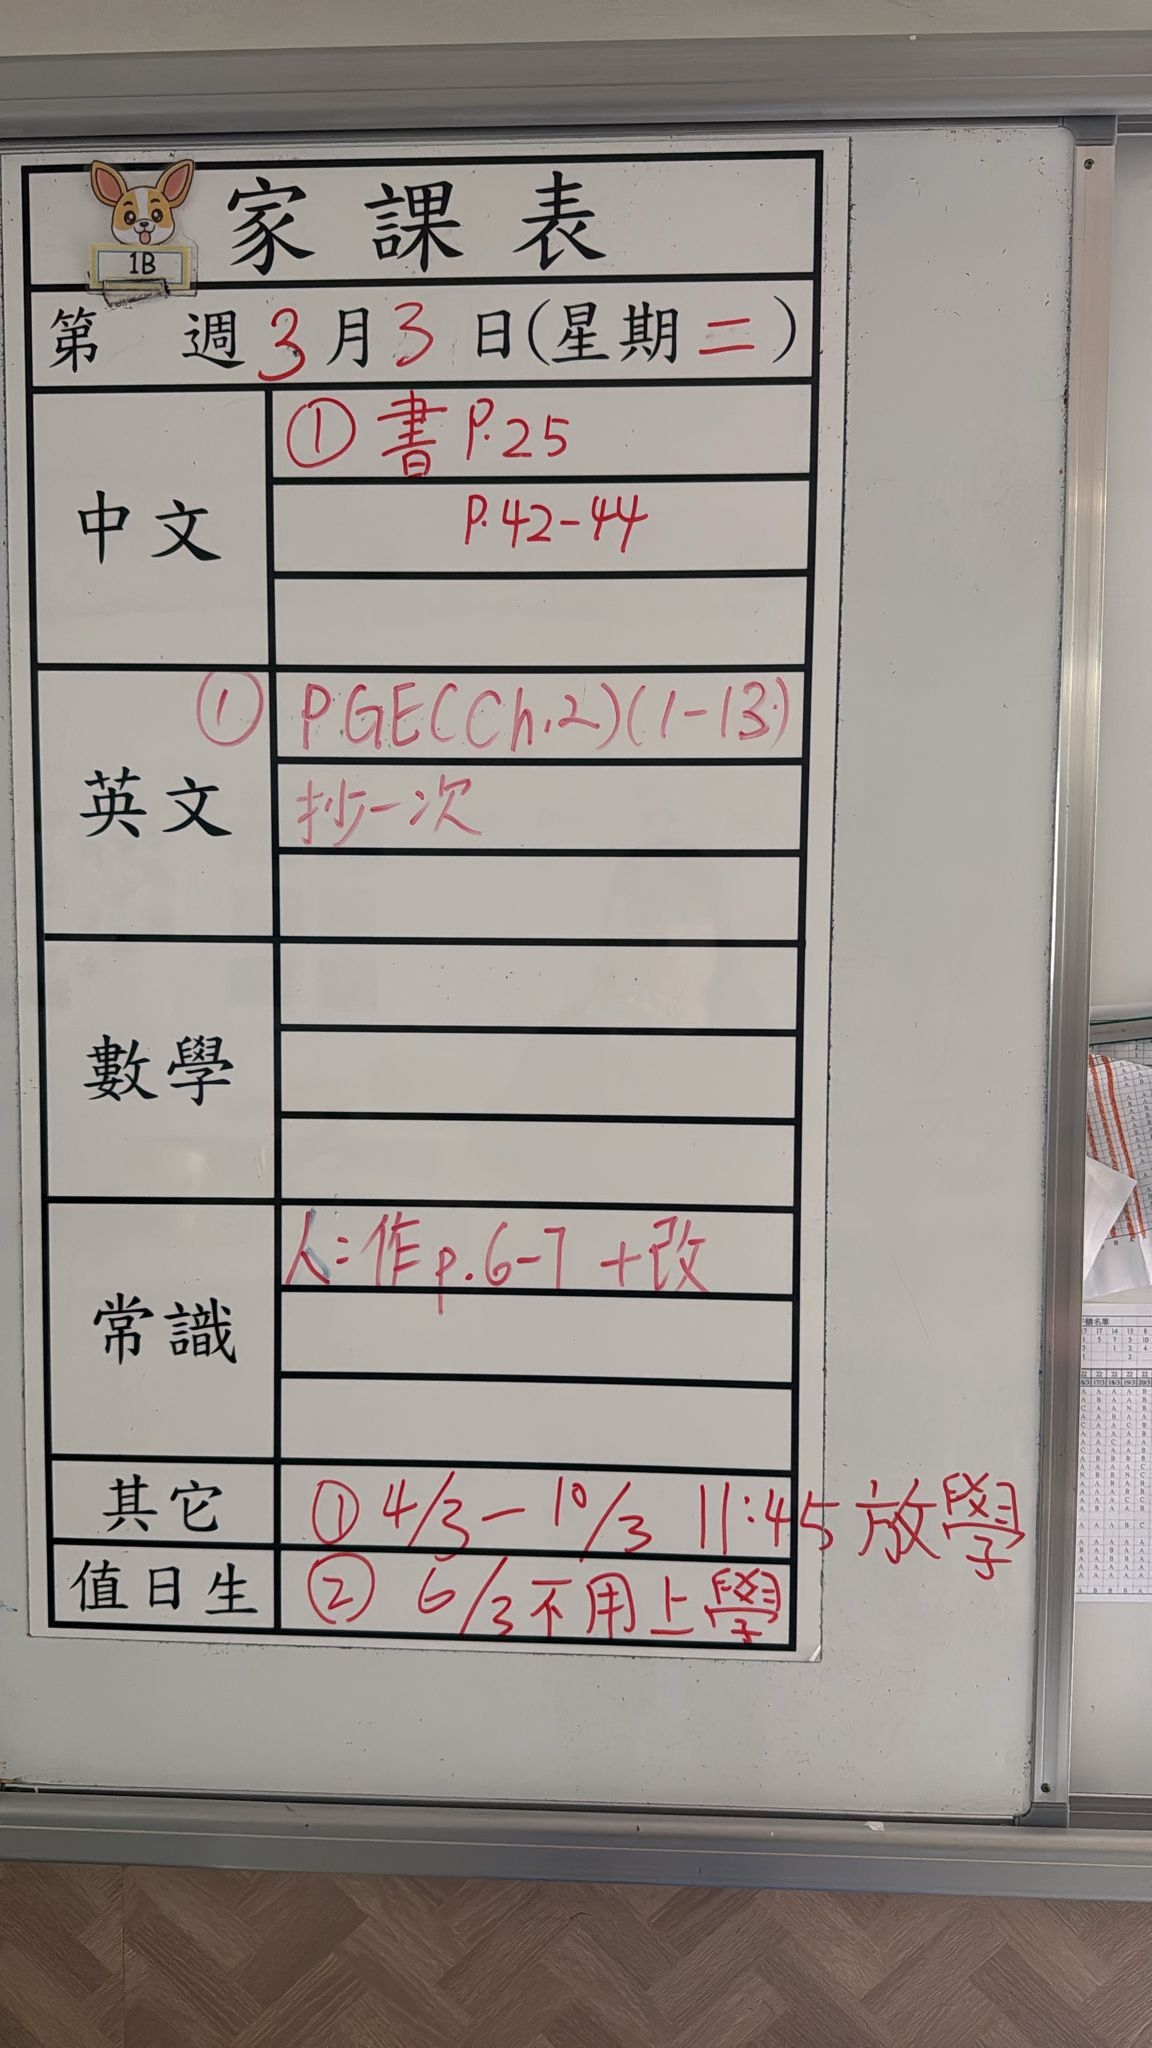 家課表
1B
第 週3月3日(星期二)
中文
① 書 P.25
P.42-44
英文
① P.GE(Ch.2)(1-13)
抄一次
數學
常識
人:作p.6-7 +改
其它
① 4/3-10/3 11:45放學
值日生
② 6/3不用上學